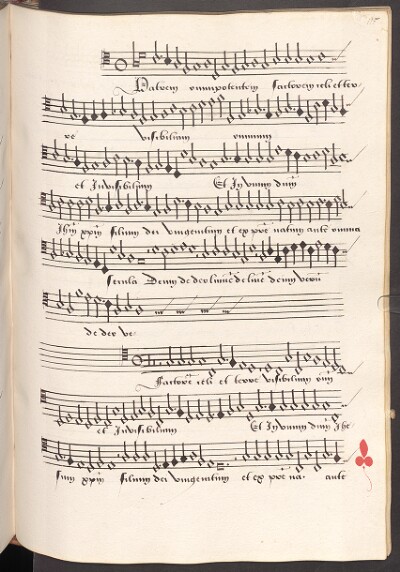 Patrem omnipotentem factorem celi et ter-
re visibilium omnium
et Invisibilium Et In unum dnm
Ihm xpm filium dei unigenitum et ex pre natum ante omnia
secula Deum de deo lumē de lumē deum verū
de deo ve-
Factorē celi et terre visibilium oīm
et Invisibilium Et In unum dnm Ihe-
sum xpm filium dei unigenitum et ex pre na- ante